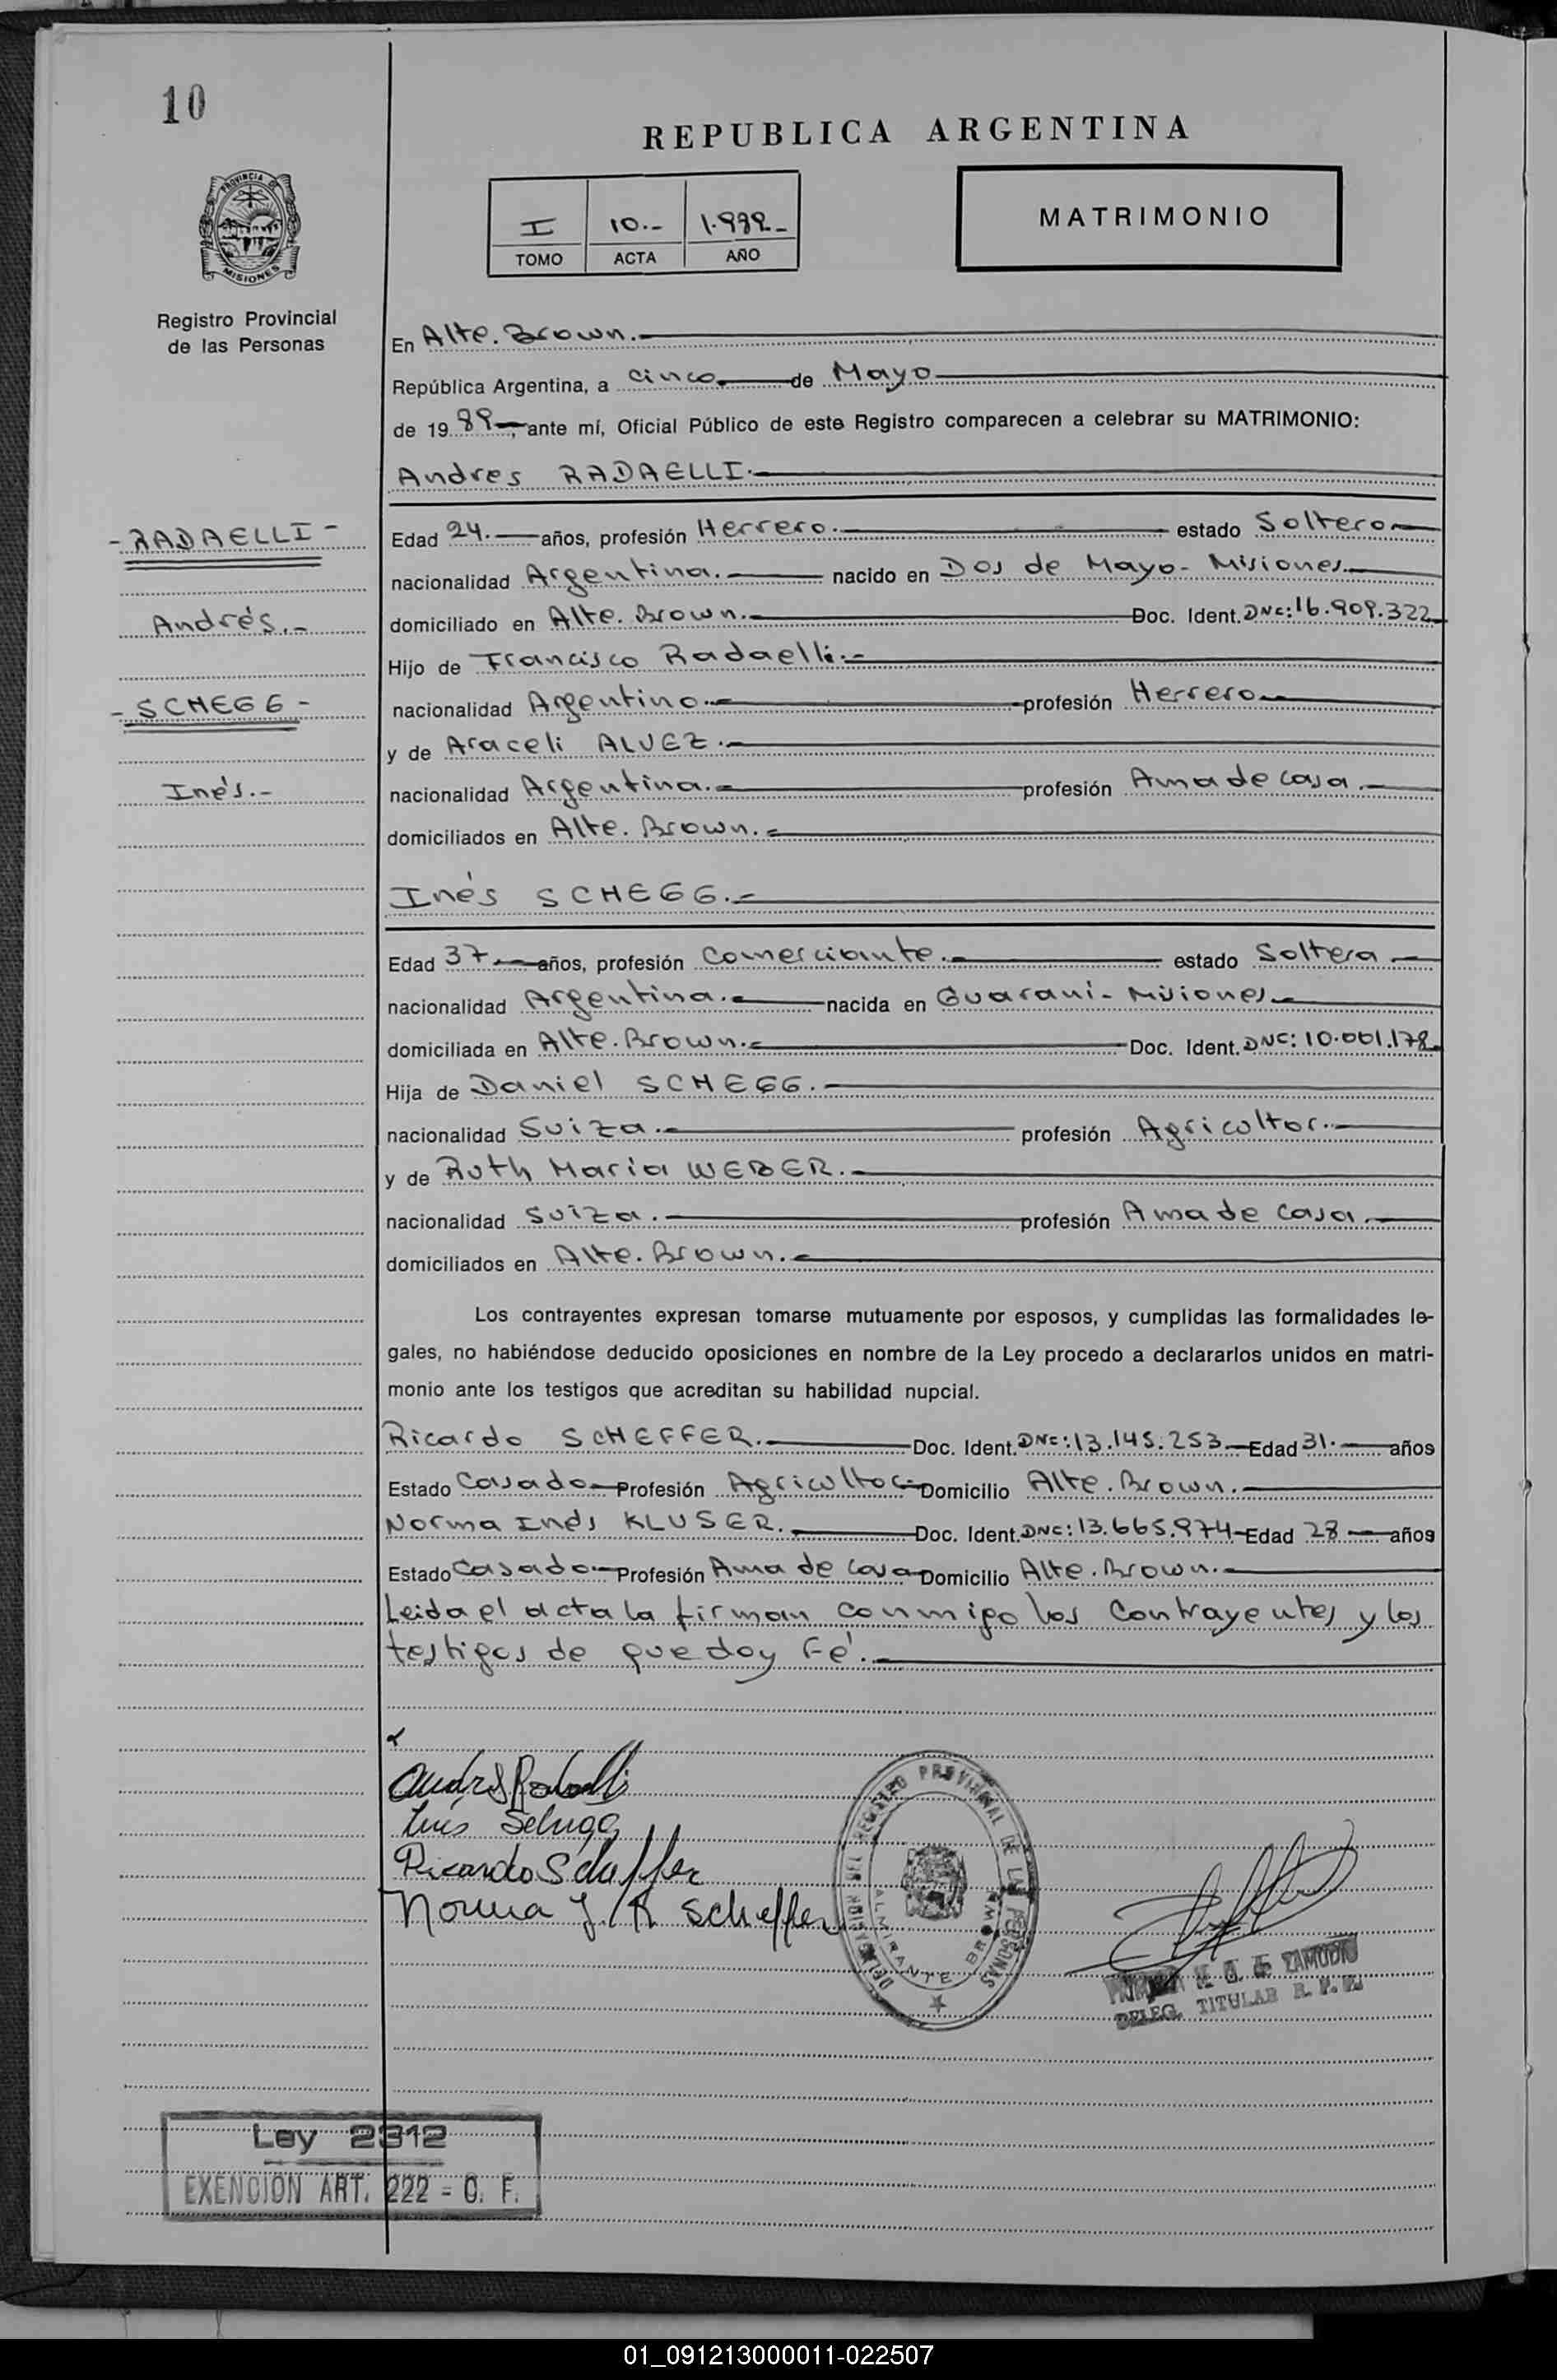 10
REPUBLICA ARGENTINA
PROVINCIA DE
MISIONES
I 10.- 1.988-
TOMO ACTA AÑO
MATRIMONIO
Registro Provincial
de las Personas
En Alte. Brown.
República Argentina, a cinco de Mayo
de 19 88, ante mí, Oficial Público de este Registro comparecen a celebrar su MATRIMONIO:
Andres RADAELLI.
- RADAELLI -
Edad 24. años, profesión Herrero. estado Soltero
nacionalidad Argentina. nacido en Dos de Mayo - Misiones
Andrés.-
domiciliado en Alte. Brown. Doc. Ident. DNC: 16.909.322
Hijo de Francisco Radaelli.-
- SCHEGG -
nacionalidad Argentino.- profesión Herrero
y de Araceli ALVEZ.-
Inés.-
nacionalidad Argentina.- profesión Ama de casa.
domiciliados en Alte. Brown.-
Inés SCHEGG.-
Edad 37. años, profesión Comerciante.- estado Soltera
nacionalidad Argentina.- nacida en Guaraní - Misiones
domiciliada en Alte. Brown.- Doc. Ident. DNC: 10.001.178
Hija de Daniel SCHEGG.
nacionalidad Suiza.- profesión Agricultor.
y de Ruth Maria WEBER.
nacionalidad Suiza. profesión Ama de casa.
domiciliados en Alte. Brown.
Los contrayentes expresan tomarse mutuamente por esposos, y cumplidas las formalidades le-
gales, no habiéndose deducido oposiciones en nombre de la Ley procedo a declararlos unidos en matri-
monio ante los testigos que acreditan su habilidad nupcial.
Ricardo SCHEFFER. Doc. Ident. DNC: 13.145.253 Edad 31. años
Estado Casado Profesión Agricultor Domicilio Alte. Brown.
Norma Inés KLUSER. Doc. Ident. DNC: 13.665.974 Edad 28 años
Estado Casado Profesión Ama de casa Domicilio Alte. Brown.
Leida el acta la firman conmigo los contrayentes y los
testigos de que doy Fé.
Andrés Radaelli
Inés Schegg
Ricardo Scheffer
Norma I. K Scheffer
DELEGACION DEL REGISTRO PROVINCIAL DE LAS PERSONAS
ALMIRANTE BROWN
ZAMUDIO
DELEG. TITULAR R. P. P.
Ley 2312
EXENCION ART. 222 - C. F.
01_091213000011-022507